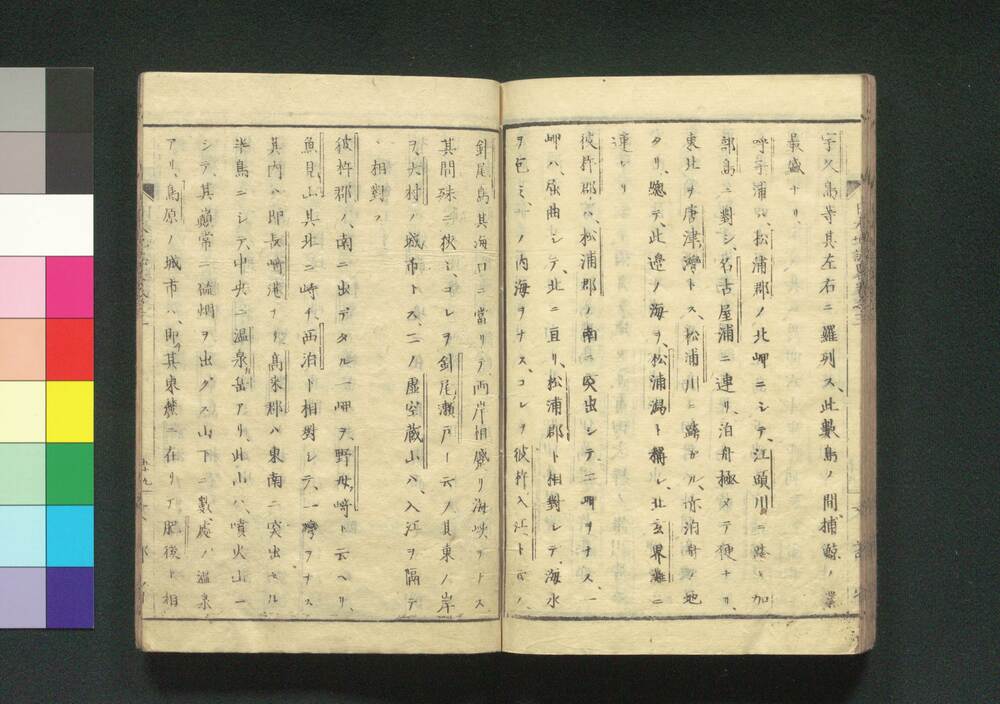 宇久島等其左右ニ羅列ス、此數島ノ間捕鯨ノ業
最盛ナリ、
呼子浦ハ、松浦郡ノ北岬ニシテ、江頭川ニ跨リ加
部島ニ對シ、名古屋浦ニ連リ、泊舟極メテ便ナリ、
東北ヲ唐津灣トス、松浦川ニ跨ガル、亦泊舟ノ地
タリ、總テ、此邊ノ海ヲ、松浦潟ト稱シ、北玄界灘ニ
連レリ
彼杵郡ハ、松浦郡ノ南ニ突出シテ、三岬ヲナス、一
岬ハ、屈曲シテ、北ニ亘リ、松浦郡ト相對シテ、海水
ヲ包ミ、一ノ内海ヲナス、コレヲ彼杵入江ト云フ、
針尾島其海口ニ當リテ、兩岸相蹙リ海峽ヲナス
其間殊ニ狹シ、コレヲ針尾瀬戸ト云フ其東ノ岸
ヲ大村ノ城市トス、ニノ虚空蔵山ハ、入江ヲ隔テ
相對ス
彼杵郡ノ、南ニ出デタル一岬ヲ、野母崎ト云ヘリ、
魚見山其北ニ峙チ、西泊ト相對シテ、一灣ヲナス
其内ハ即長崎港ナリ、高来郡ハ東南ニ突出セル
半島ニシテ、中央ニ温泉岳アリ、此山ハ、噴火山ニ
シテ、其巓常ニ硫烟ヲ出ダス山下ニ數處ノ温泉
アリ、島原ノ城市ハ、即其東麓ニ在リテ肥後ト相